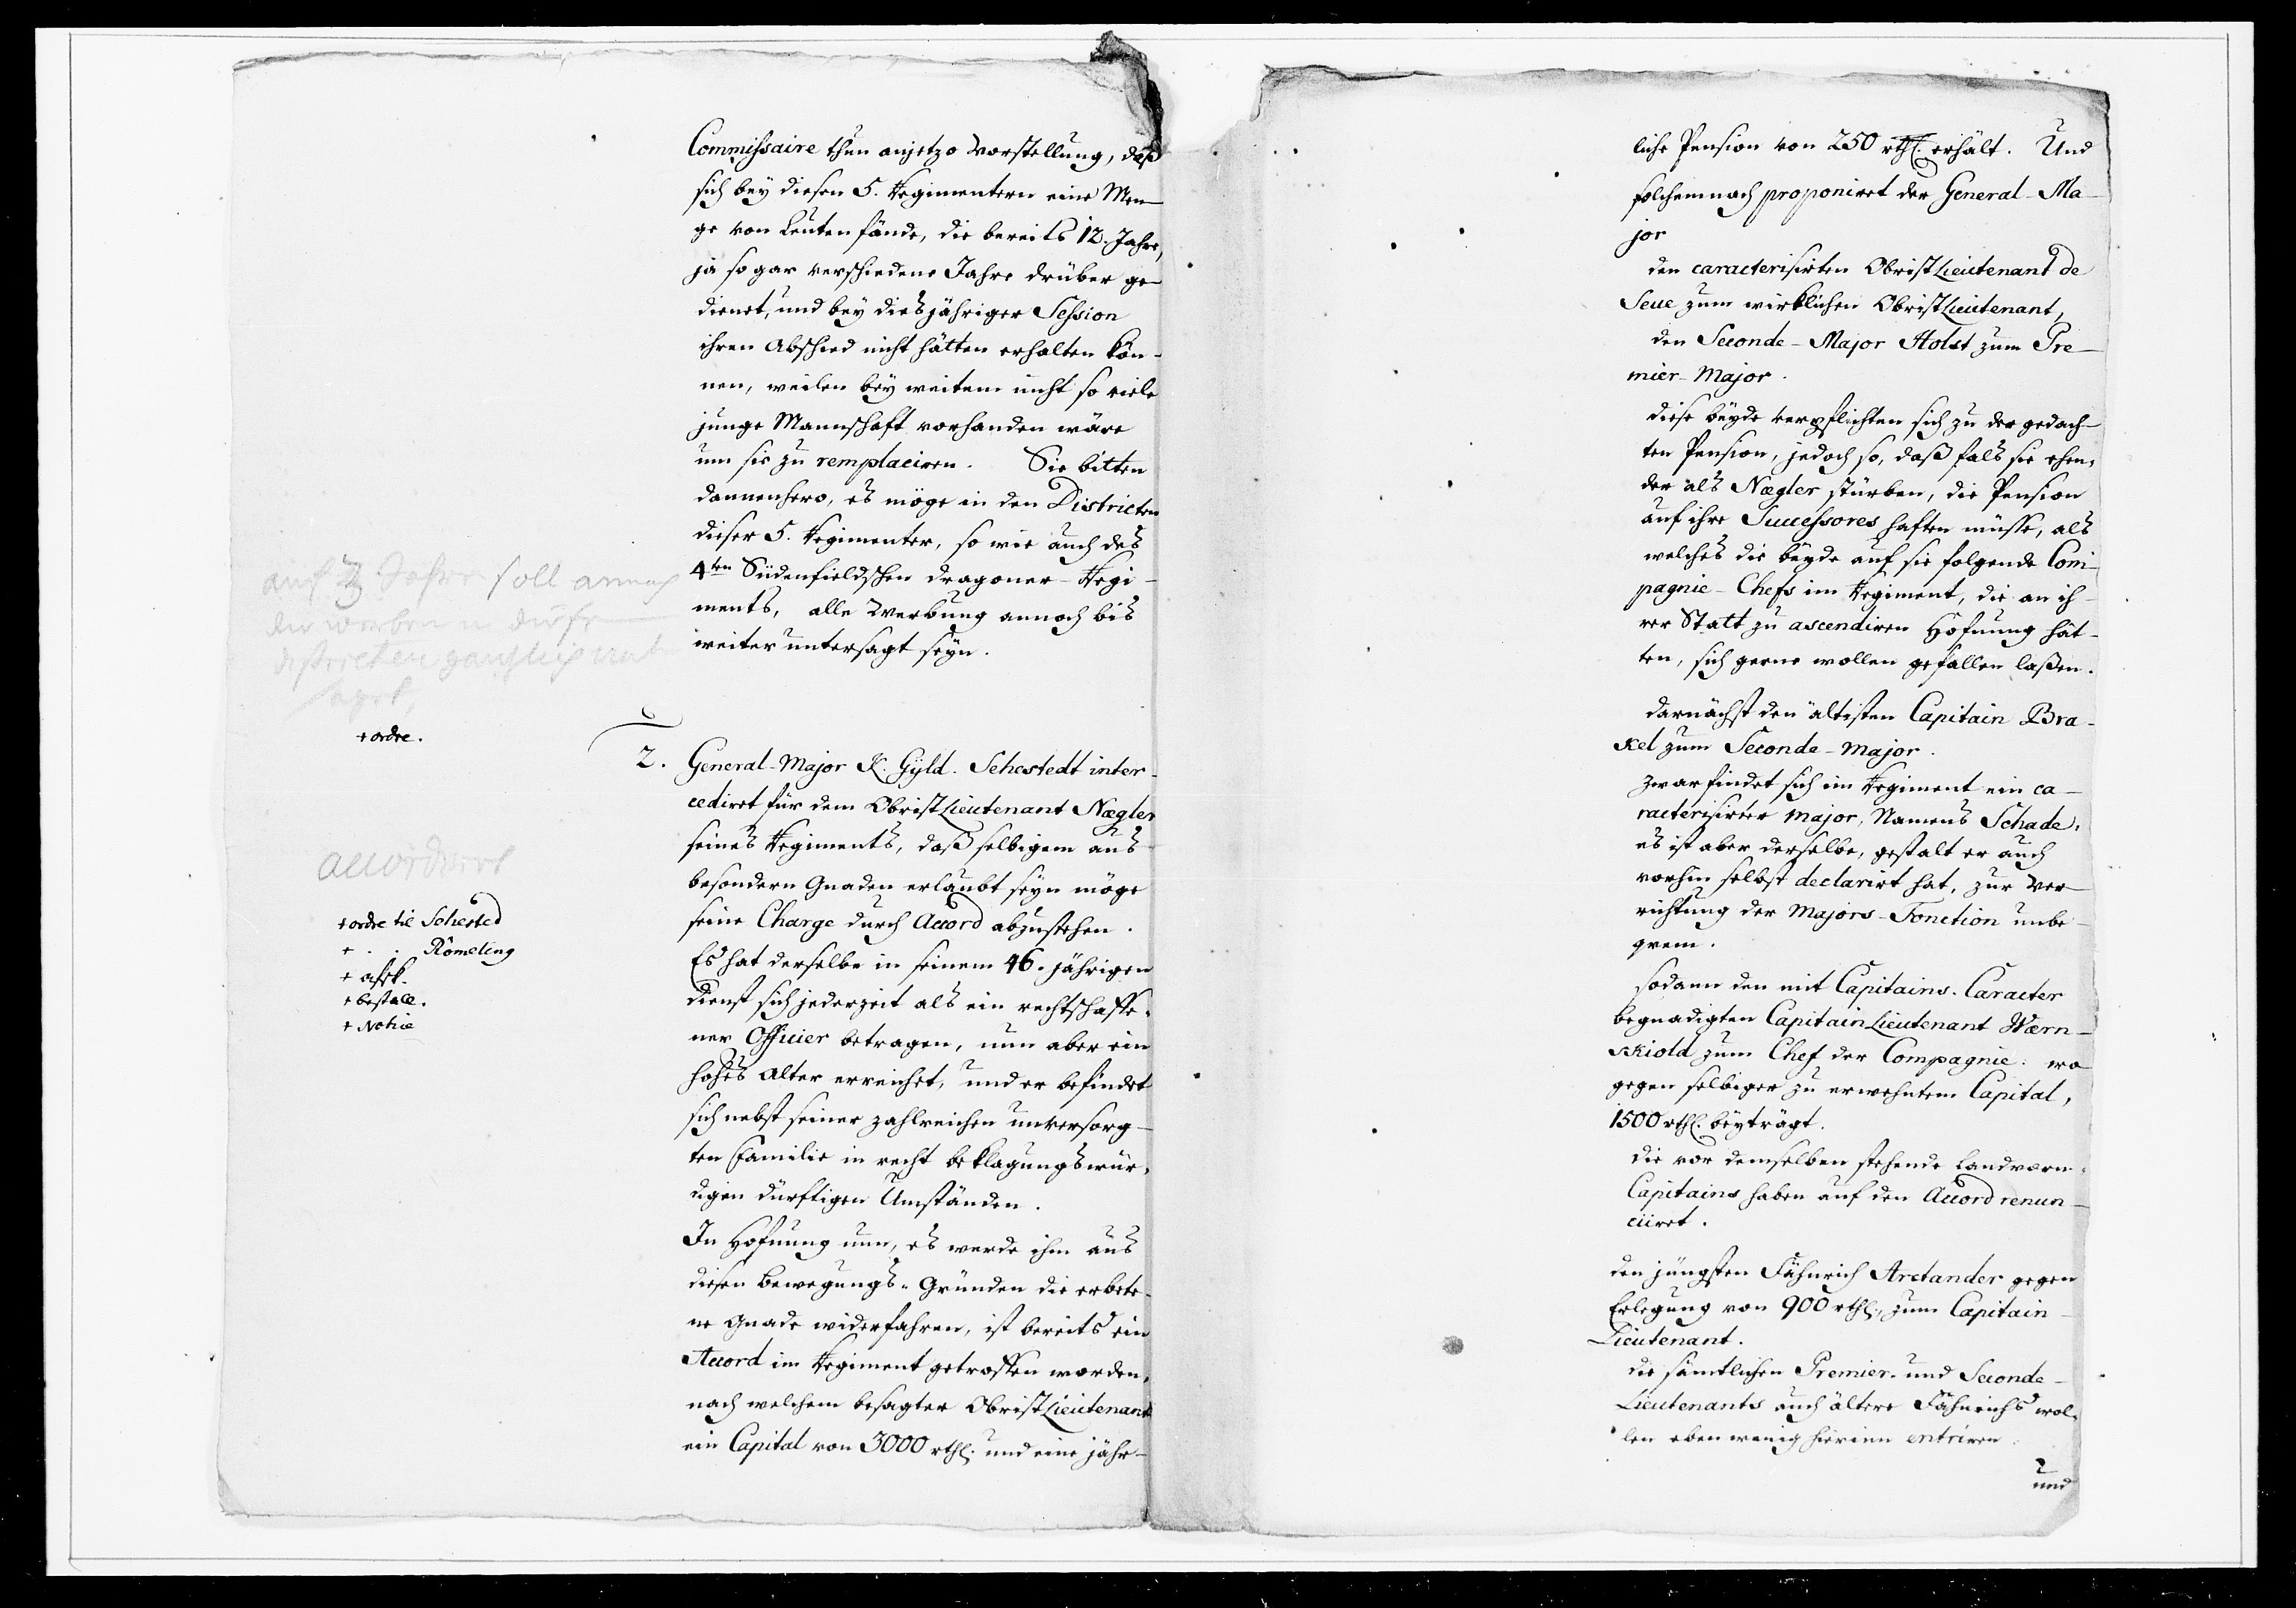 Commissaire thun anjetzo Vorstellung, daß
sich bey diesen 5. Regimentern eine Men-
ge von Leuten fände, die bereits 12. Jahre,
ja sogar verschiedene Jahre drüber ge-
dienet, und bey diesjähriger Session
ihren Abschied nicht hätten erhalten kön-
nen, weilen bey weitem nicht so viele
junge Mannschaft vorhanden wäre
um sie zu remplaciren. Sie bitten
dannenhero, es möge in den Districten
dieser 5. Regimenter, so wie auch des
4ten Südenfieldschen Dragoner-Regi-
ments, alle Werbung annoch bis
weiter untersagt seyn.
auf 3 Jahre soll annoch
die werben in
districten gantzlich unter
sagt,
+ ordre.
2. General-Major K. Gyld. Sehestedt inter-
cediret für dem ObristLieutenant Nægler
seines Regiments, daß selbigem aus
besondern Gnaden erlaubt seyn möge
seine Charge durch Accord abzustehen.
Es hat derselbe in seinem 46. jährigen
Dienst sich jederzeit als ein rechtschaffe-
ner Officier betragen, nun aber ein
hohes Alter erreichet, und er befindet
sich nebst seiner zahlreichen unversorg-
ten Familie in recht beklagungswür-
digen dürftigen Umständen.
In Hofnung nun, es werde ihm aus
diesen Bewegungs-Gründen die erbete-
ne Gnade widerfahren, ist bereits ein
Accord im Regiment getroffen worden,
nach welchem besagter ObristLieutenant
ein Capital von 3000 rthl. und eine jähr-
accordirt
+ ordre til Sehested
+ . . Römeling
+ afsk.
+ bestall.
+ Notice
liche Pension von 250 rthl. erhält. Und
solchemnach proponiret der General-Ma-
jor
den caracterisirten ObristLieutenant de
Seue zum wirklichen ObristLieutenant,
den Seconde-Major Holst zum Pre-
mier-Major.
diese beyde verpflichten sich zu der gedach-
ten Pension, jedoch so, daß fals sie ehen-
der als Nægler stürben, die Pension
auf ihre Successores haften müsse, als
welches die beyde auf sie folgende Com-
pagnie-Chefs im Regiment, die an ih-
rer Statt zu ascendiren Hofnung hät-
ten, sich gerne wollen gefallen laßen.
darnächst den ältisten Capitain Bra-
kel zum Seconde-Major.
Zwar findet sich im Regiment ein ca-
racterisirter Major, Namens Schade,
es ist aber derselbe, gestalt er auch
vorhin selbst declarirt hat, zur Ver-
richtung der Majors-Fonction unbe-
qvem.
sodann den mit Capitains-Caracter
begnadigten CapitainLieutenant Wærn-
skiold zum Chef der Compagnie: wo-
gegen selbiger zu erwehntem Capital,
1500 rthl. beyträgt.
die vor demselben stehende Landværn-
Capitains haben auf den Accord renun-
ciiret.
den jüngsten Fähnrich Arctander gegen
Erlegung von 900 rthl., zum Capitain-
Lieutenant.
die sämtlichen Premier- und Seconde-
Lieutenants auch ältere Fähnrichs wol-
len eben wenig hierinn entriren:
und